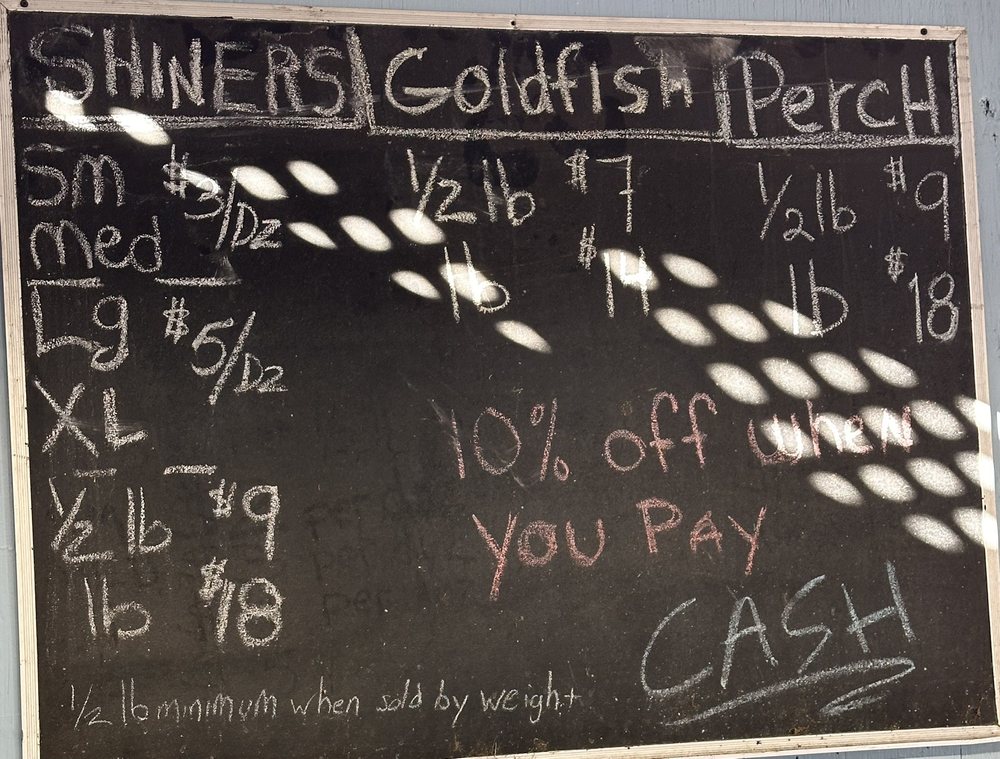 SHINERS
Sm $3/Dz
med
Lg $5/Dz
XL
1/2 lb $9
lb $18
Goldfish
1/2 lb $7
lb $14
Perch
1/2 lb $9
lb $18
10% off when
you Pay
CASH
1/2 lb minimum when sold by weight